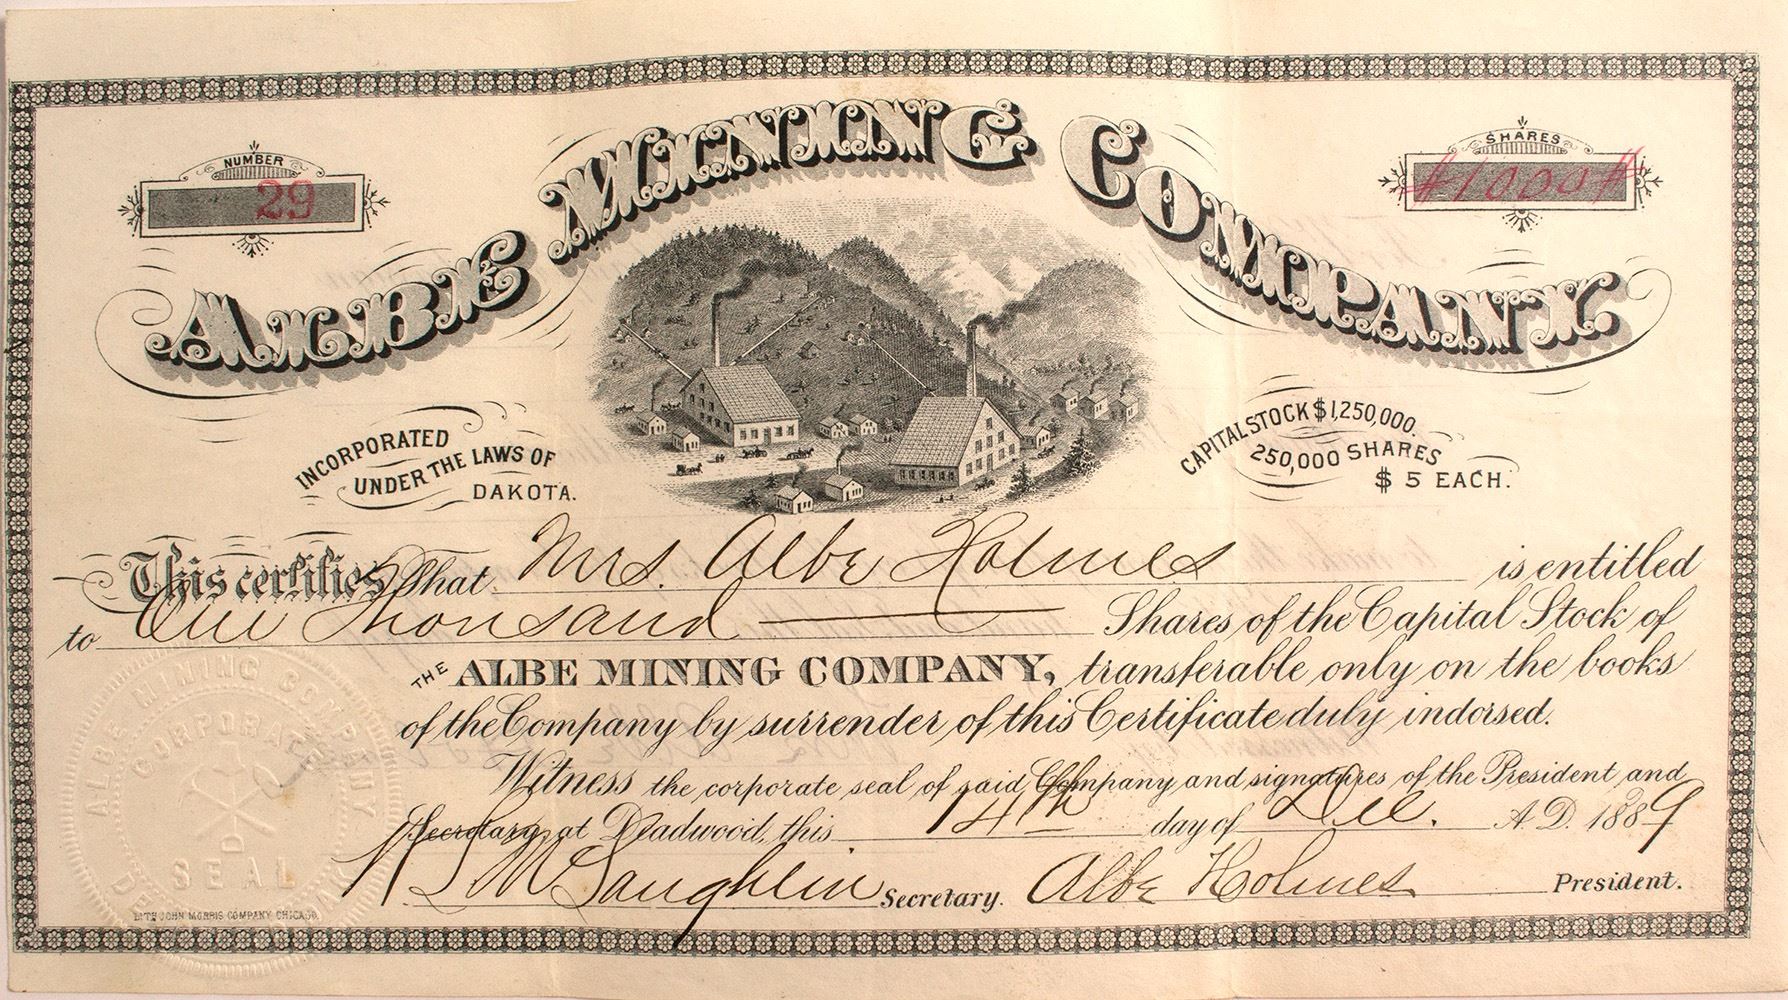 NUMBER
29
SHARES
#1000#
ALBE MINING COMPANY.
INCORPORATED
UNDER THE LAWS OF
DAKOTA.
CAPITAL STOCK $1,250,000.
250,000 SHARES
$ 5 EACH.
This certifies that Mrs. Albe Holmes is entitled
to One Thousand Shares of the Capital Stock of
THE ALBE MINING COMPANY, transferable only on the books
of the Company by surrender of this Certificate duly indorsed.
Witness the corporate seal of said Company and signatures of the President and
Secretary, at Deadwood, this 14th day of Dec. A.D. 1889
McLaughlin Secretary. Albe Holmes President.
ALBE MINING COMPANY
CORPORATE
SEAL
LITH JOHN MORRIS COMPANY CHICAGO.